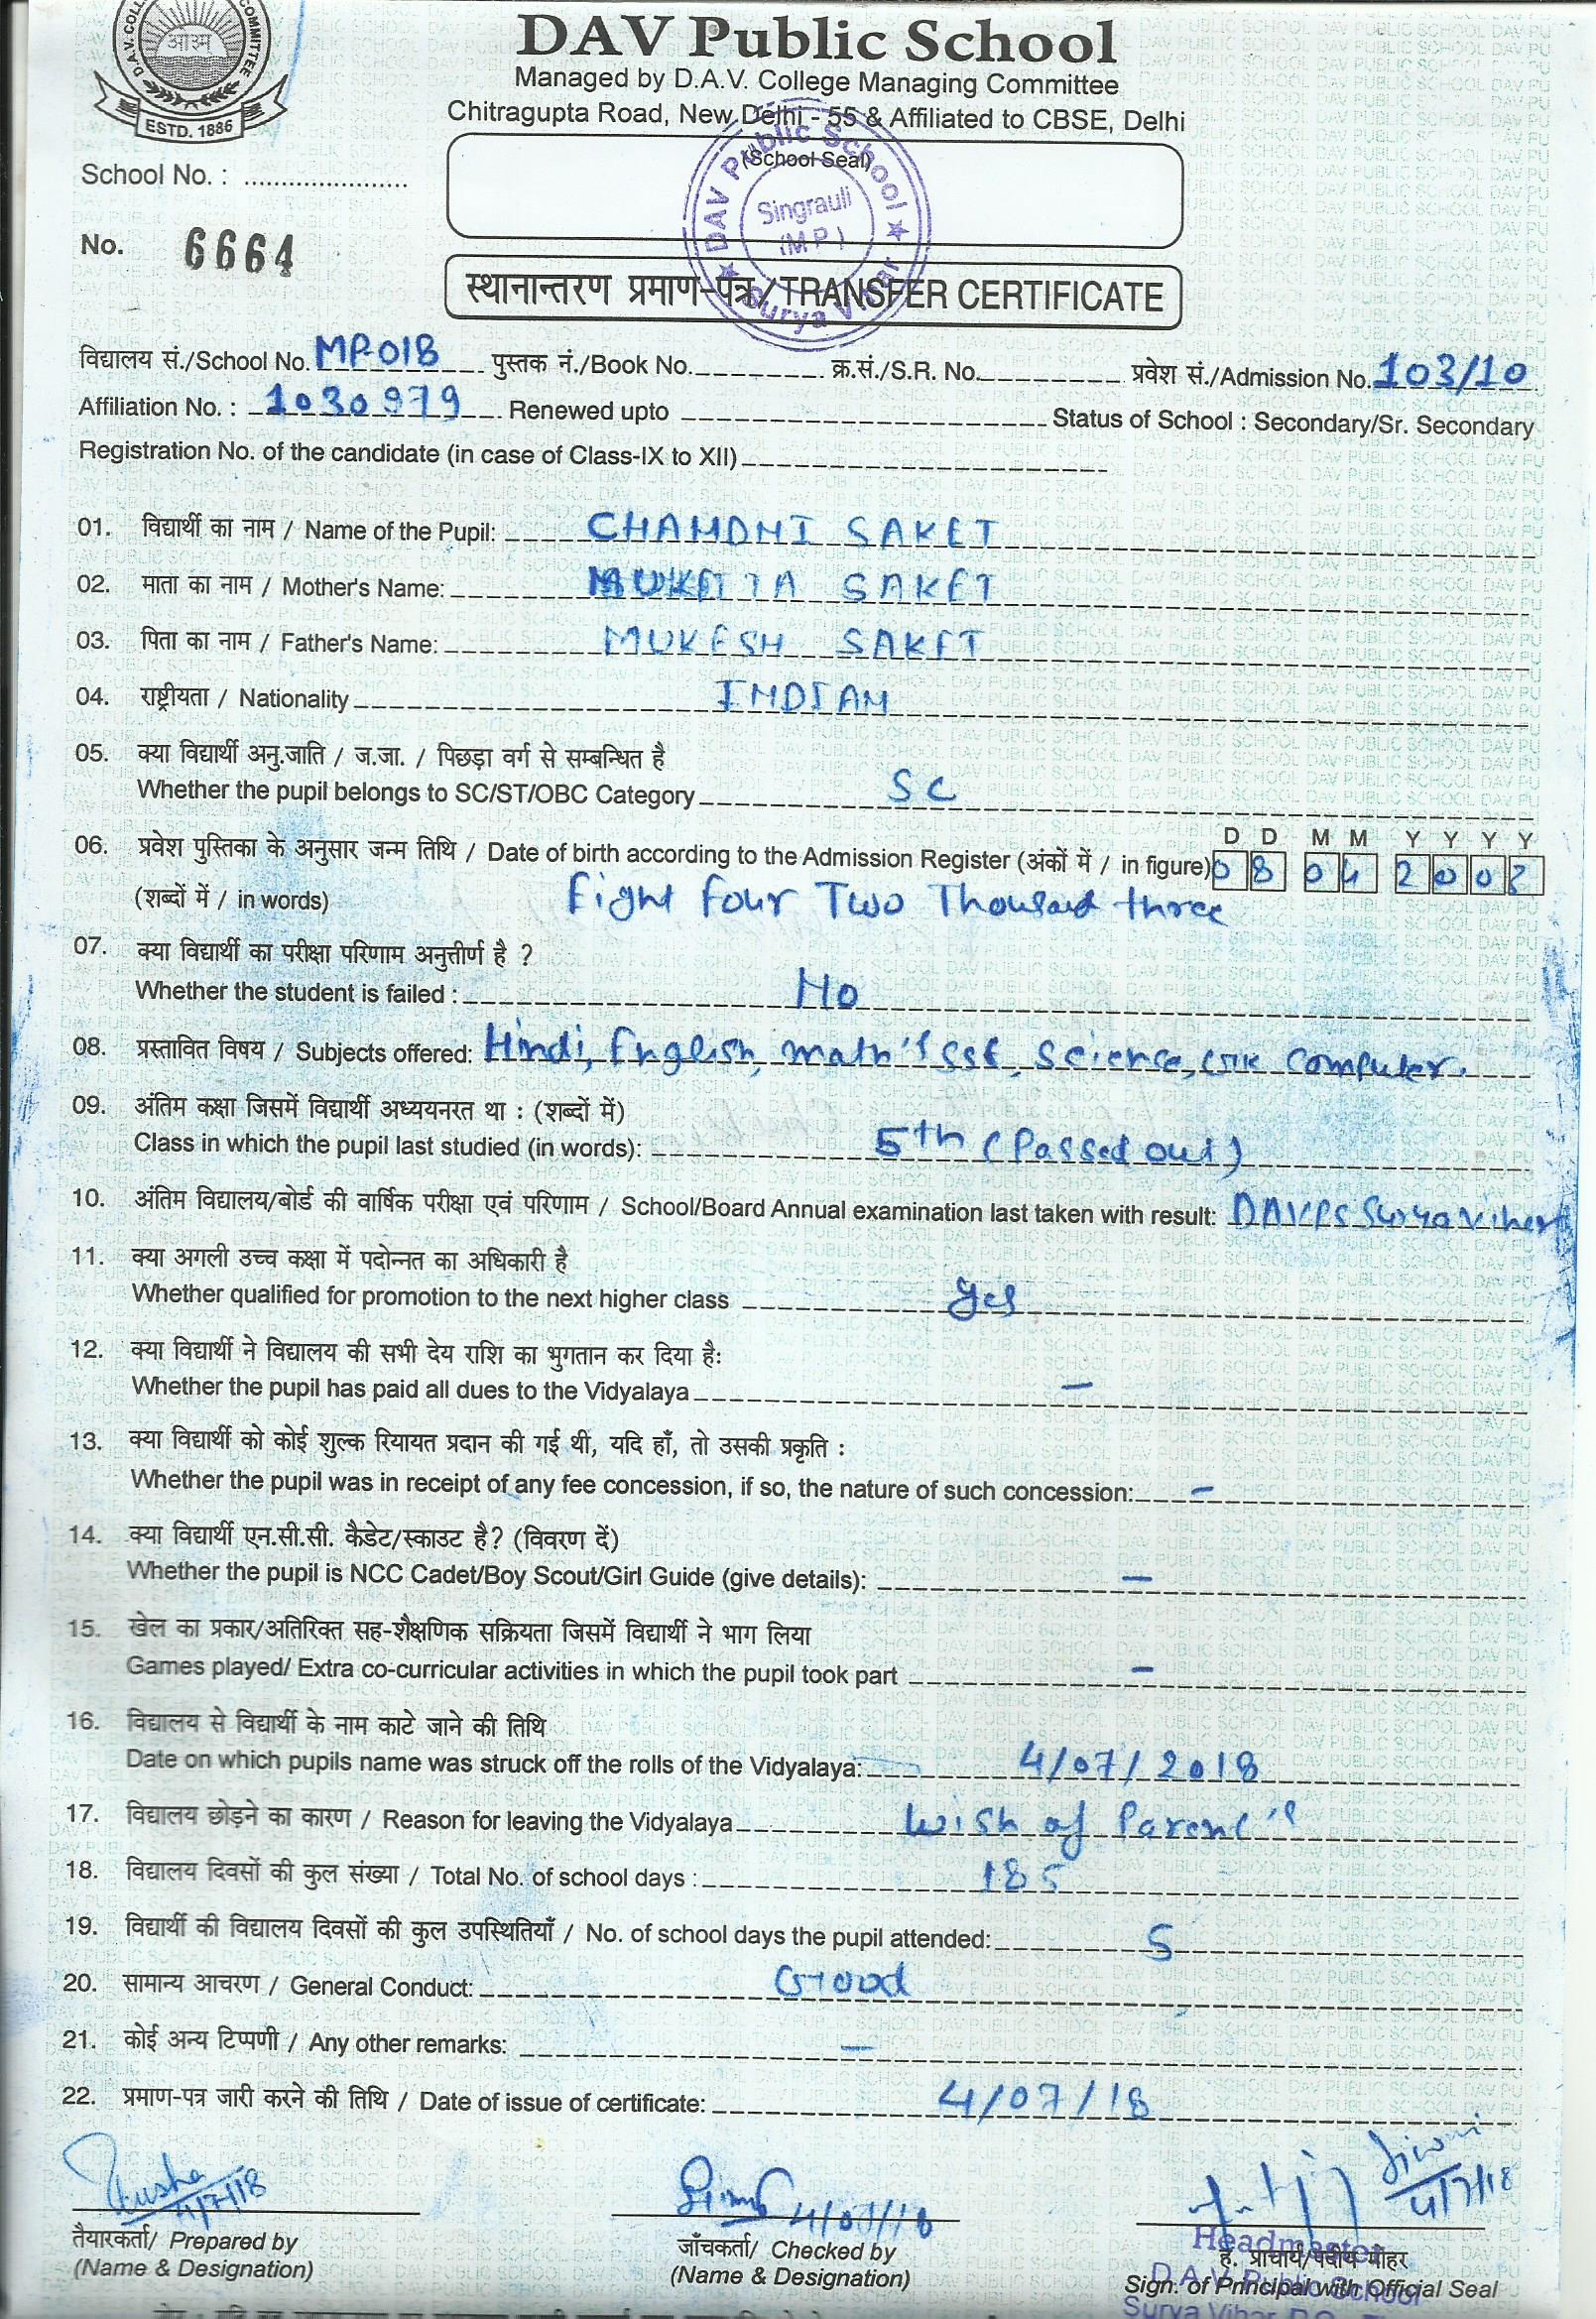 DAV Public School
Managed by D.A.V. College Managing Committee
Chitragupta Road, New Delhi - 55 & Affiliated to CBSE, Delhi
ओ३म्
ESTD. 1886
(School Seal)
DAV Public School
Singrauli
(M P)
Surya Vihar
School No. :
No. 6664
स्थानान्तरण प्रमाण-पत्र / TRANSFER CERTIFICATE
विद्यालय सं./School No. MP-018 पुस्तक नं./Book No. क्र.सं./S.R. No. प्रवेश सं./Admission No. 103/10
Affiliation No. : 1030979 Renewed upto Status of School : Secondary/Sr. Secondary
Registration No. of the candidate (in case of Class-IX to XII)
01. विद्यार्थी का नाम / Name of the Pupil: CHANDNI SAKET
02. माता का नाम / Mother's Name: SAKET
03. पिता का नाम / Father's Name: MUKESH SAKET
04. राष्ट्रीयता / Nationality INDIAN
05. क्या विद्यार्थी अनु.जाति / ज.जा. / पिछड़ा वर्ग से सम्बन्धित है
Whether the pupil belongs to SC/ST/OBC Category SC
D D M M Y Y Y Y
06. प्रवेश पुस्तिका के अनुसार जन्म तिथि / Date of birth according to the Admission Register (अंकों में / in figure) 08 04 2003
(शब्दों में / in words) Eight Four Two Thousand three
07. क्या विद्यार्थी का परीक्षा परिणाम अनुत्तीर्ण है ?
Whether the student is failed : No
08. प्रस्तावित विषय / Subjects offered: Hindi, English, math's SSt, Science, Computer.
09. अंतिम कक्षा जिसमें विद्यार्थी अध्ययनरत था : (शब्दों में)
Class in which the pupil last studied (in words): 5th (Passed out)
10. अंतिम विद्यालय/बोर्ड की वार्षिक परीक्षा एवं परिणाम / School/Board Annual examination last taken with result: DAVPS Surya Vihar
11. क्या अगली उच्च कक्षा में पदोन्नत का अधिकारी है
Whether qualified for promotion to the next higher class yes
12. क्या विद्यार्थी ने विद्यालय की सभी देय राशि का भुगतान कर दिया है:
Whether the pupil has paid all dues to the Vidyalaya –
13. क्या विद्यार्थी को कोई शुल्क रियायत प्रदान की गई थी, यदि हाँ, तो उसकी प्रकृति :
Whether the pupil was in receipt of any fee concession, if so, the nature of such concession: –
14. क्या विद्यार्थी एन.सी.सी. कैडेट/स्काउट है? (विवरण दें)
Whether the pupil is NCC Cadet/Boy Scout/Girl Guide (give details): –
15. खेल का प्रकार/अतिरिक्त सह-शैक्षणिक सक्रियता जिसमें विद्यार्थी ने भाग लिया
Games played/ Extra co-curricular activities in which the pupil took part –
16. विद्यालय से विद्यार्थी के नाम काटे जाने की तिथि
Date on which pupils name was struck off the rolls of the Vidyalaya: 4/07/2018
17. विद्यालय छोड़ने का कारण / Reason for leaving the Vidyalaya Wish of Parent's
18. विद्यालय दिवसों की कुल संख्या / Total No. of school days : 185
19. विद्यार्थी की विद्यालय दिवसों की कुल उपस्थितियाँ / No. of school days the pupil attended: 5
20. सामान्य आचरण / General Conduct: Good
21. कोई अन्य टिप्पणी / Any other remarks: –
22. प्रमाण-पत्र जारी करने की तिथि / Date of issue of certificate: 4/07/18
4/7/18 4/07/18 4/7/18
तैयारकर्ता/ Prepared by
(Name & Designation)
जाँचकर्ता/ Checked by
(Name & Designation)
Headmaster
ह. प्राचार्य/पदीय मोहर
D.A.V. Public School
Sign. of Principal with Official Seal
Surya Vihar P.O.